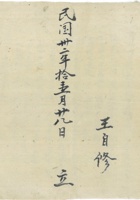 民国卅二年拾壹月廿八日 立
王自修